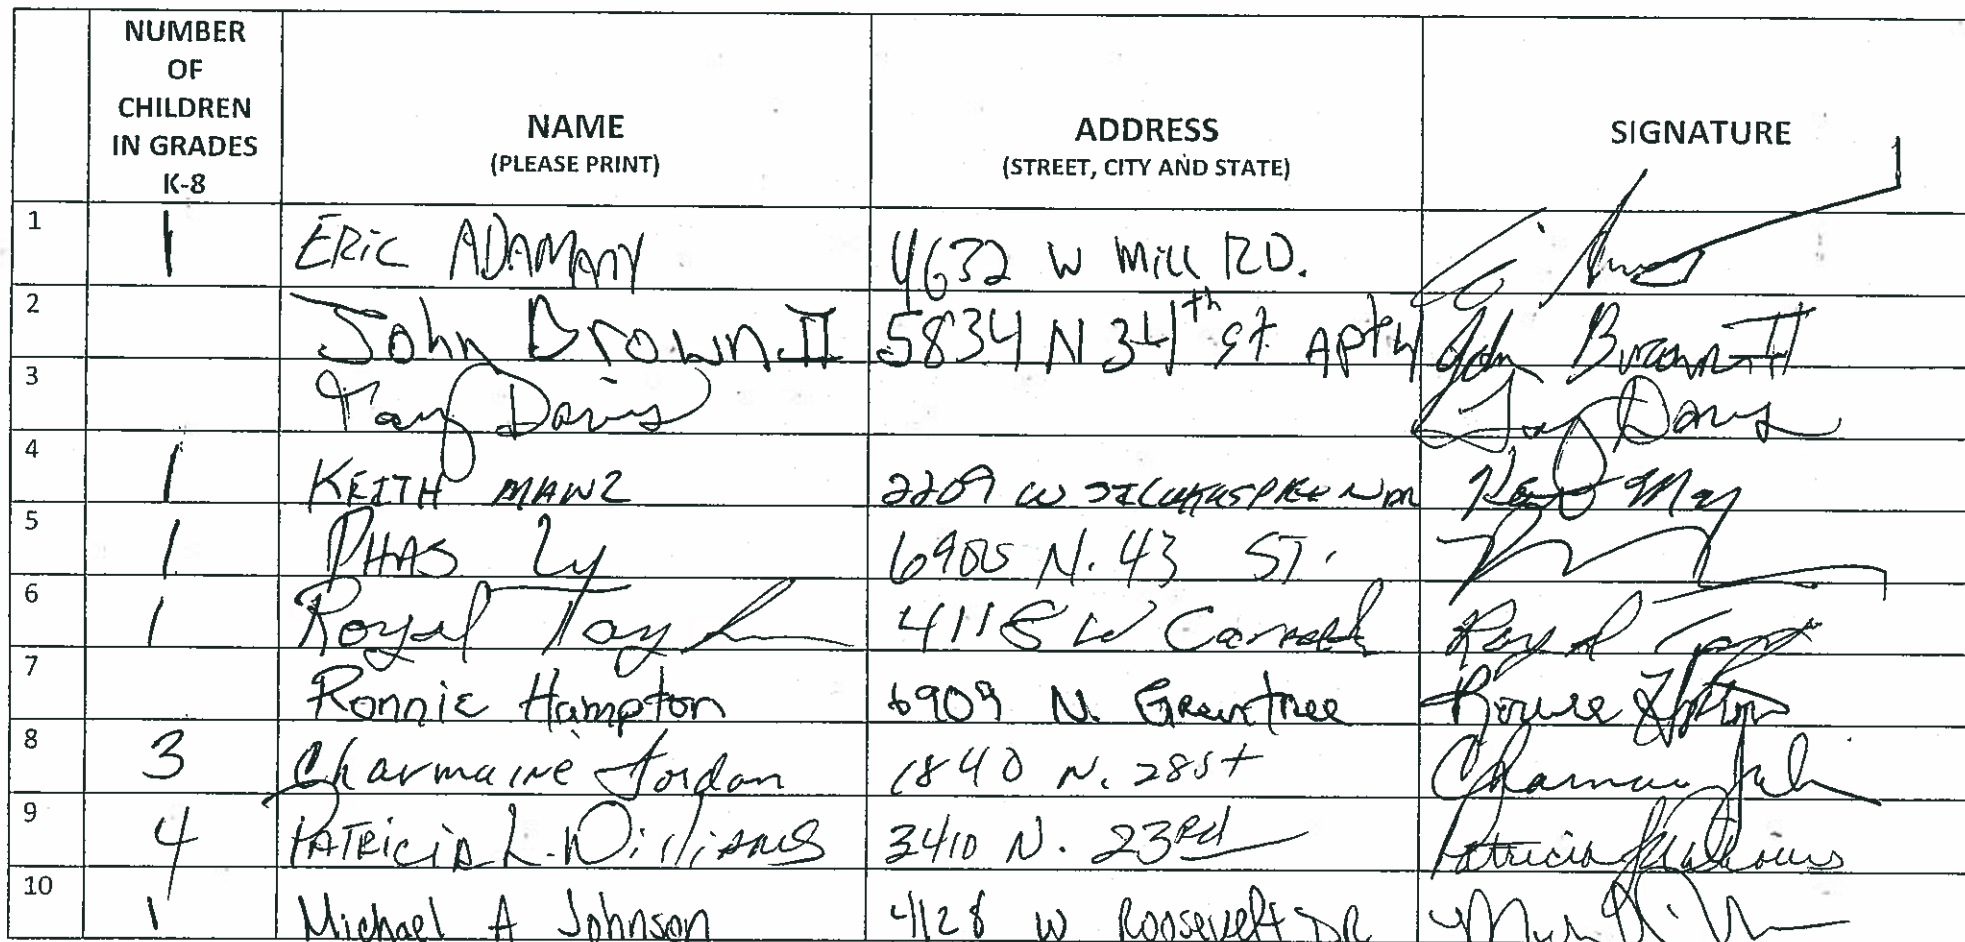 NUMBER OF CHILDREN IN GRADES K-8 NAME (PLEASE PRINT) ADDRESS (STREET, CITY AND STATE) SIGNATURE
1 1 ERIC ADAMANY 4632 W Mill RD.
2 John Brown II 5834 N 34th st Apt 4 John Brown II
3 Tay Davis Tay Davis
4 1 KEITH MANZ 2209 W
5 1 PHAS Ly 6905 N. 43 ST.
6 1 Royal Taylor 4118 W Royal
7 Ronnie Hampton 6909 N. Greentree
8 3 Charmaine Jordan 1840 N. 28st
9 4 PATRICIA L. Williams 3410 N. 23RD Patricia Williams
10 1 Michael A Johnson 4128 W Roosevelt DR